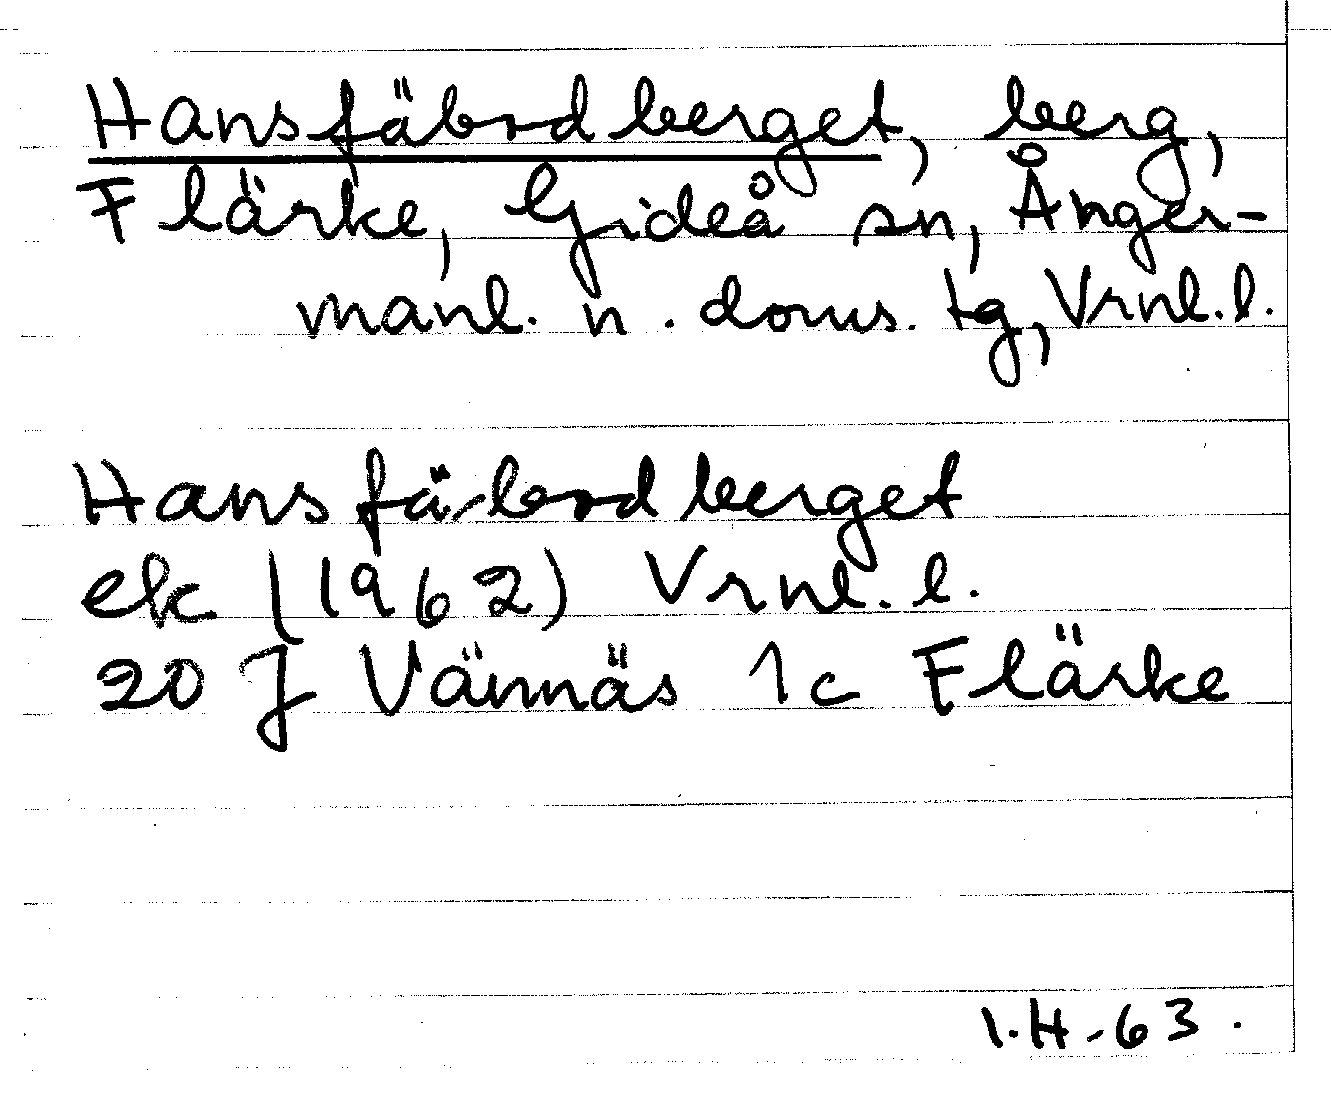 Hansfäbodberget, berg,
Flärke, Gideå sn, Ånger-
manl. n. doms. tg, Vrnl. l.
Hansfäbodberget
ek (1962) Vrnl. l.
20 J Vännäs 1c Flärke
I.H-63.